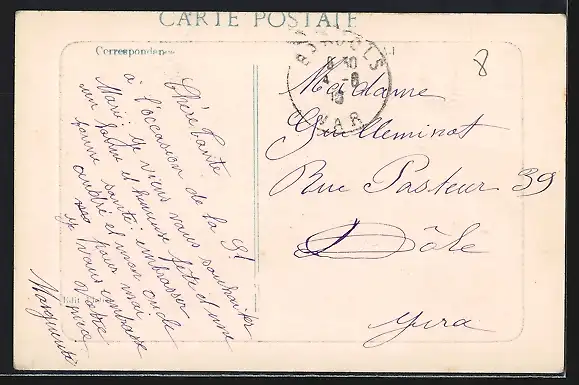 CARTE POSTALE
Correspondance
Chère Tante
à l'occasion de la St
Marie je viens vous souhaiter
une bonne et heureuse fête et une
bonne santé. embrasser
André et mon oncle
pour moi
je vous embrasse
Votre
nièce
Marguerite
Edit
VAR
8
Madame
Guilleminot
Rue Pasteur 39
Dôle
Jura